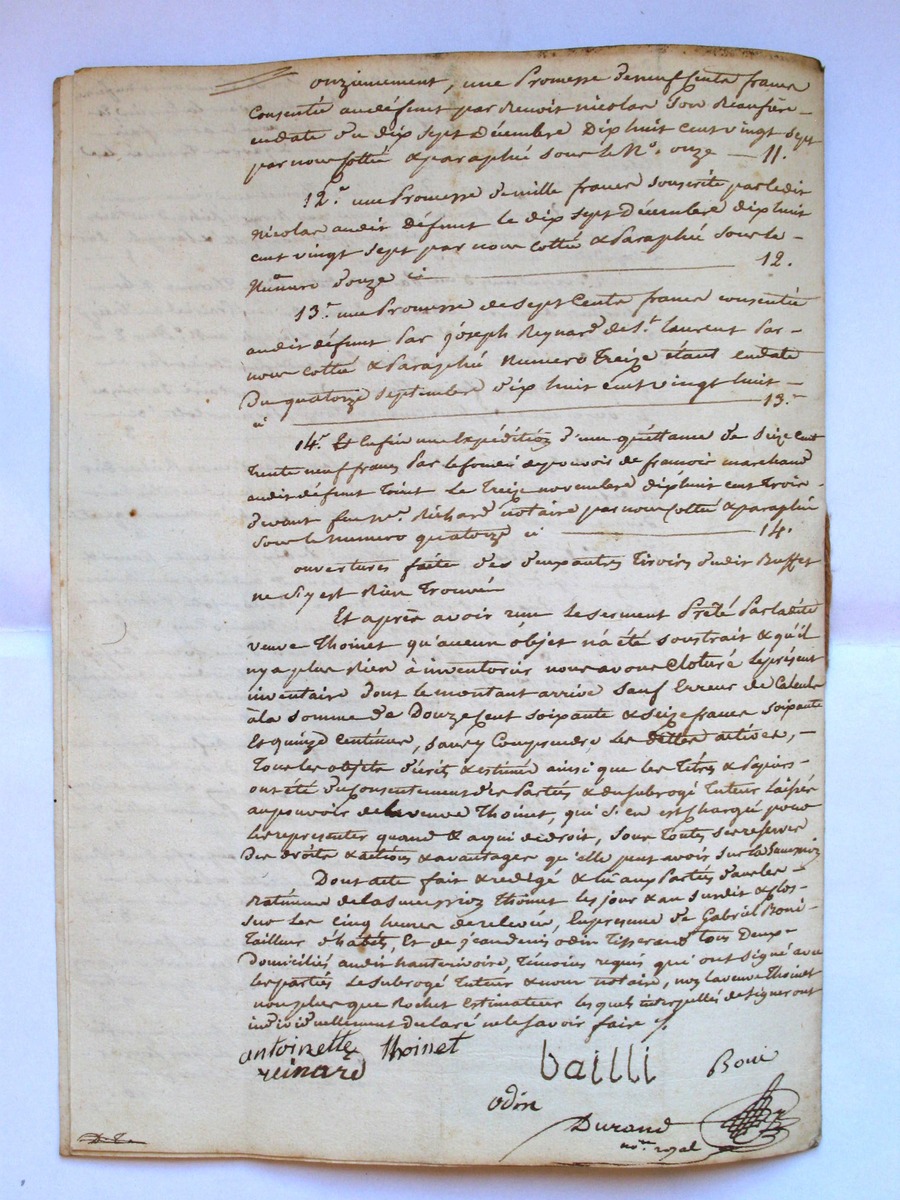 onziemement, une Promesse de neuf Cents francs
Consentie au défunt par Benoit nicolas son Beaufrère
en date du dix sept décembre dix huit cent vingt sept
par nous Cotté & paraphé sous le No. onze — 11.
12.e une Promesse de mille francs souscrite par ledit
Nicolas audit défunt le dix sept décembre dix huit
cent vingt sept par nous cotté & Paraphé sous le
Numéro douze ci — 12.
13.e une Promesse de sept Cents francs consentie
audit défunt par joseph Reynard de St. laurent par
nous Cotté & Paraphé Numero Treize étant en date
du quatorze septembre dix huit cent vingt huit
ci — 13.
14.e Et Enfin une Expédition d'une quittance de seize cent
trente neuf francs par le fondé de pouvoir de francois marchand
audit défunt Toint le treize novembre dix huit cent trois
devant feu Me. Richard notaire par nous Cotté & paraphé
sous le numero quatorze ci — 14.
ouvertures faites des deux autres Tiroirs dudit Buffet
ne s'y est Rien Trouvé
Et après avoir reçu le serment Prêté Par ladite
veuve Thoinet qu'aucun objet n'a été soustrait & qu'il
n'y a plus Rien à inventorier nous avons Cloturé le présent
inventaire dont le montant arrive sauf Erreur de Calculs
à la somme de Douze Cent soixante & seize francs soixante
Et quinze Centimes, sans y Comprendre les dettes actives,
Tous les objets décrits & estimés ainsi que les Titres & Papiers
ont été du Consentement des Parties & du subrogé Tuteur Laissés
au pouvoir de la veuve Thoinet, qui s'en est chargée pour
les representer quand & a qui de droit, sous toutes ses reserves
des droits & actions & avantages qu'elle peut avoir sur la succession
Dont acte fait & redigé & lu aux Parties dans le
Batiment de la succession Thoinet les jour & an susdit & clos
sur les cinq heures de relevée, En présence de Gabriel Boni
Tailleur d'habits, Et de jean denis odin Tisserand tous Deux
domiciliés audit hauterivoire, témoins requis qui ont signé avec
les parties le subrogé tuteur & nous notaire, non la veuve Thoinet
non plus que Rochet Estimateur lesquels interpellés de signer ont
individuellement déclaré ne le savoir faire
antoinette thoinet
reinard
bailli
Boni
odin
Durand
nore royal